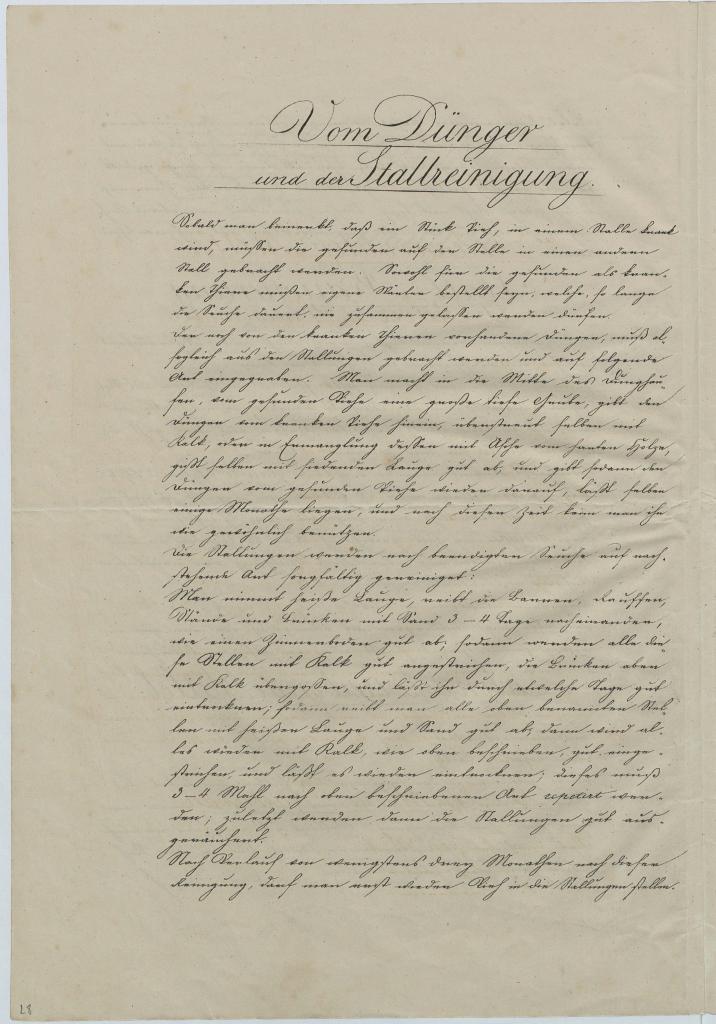 Vom Dünger
und der Stallreinigung.
Sobald man bemerkt, daß ein Stück Vieh, in einem Stalle krank
wird, müssen die gesunden auf der Stelle in einen andern
Stall gebracht werden. Sowohl für die gesunden als kran-
ken Thiere müssen eigene Wärter bestellt seyn, welche, so lange
die Seuche dauert, nie zusammen gelassen werden dürfen.
Der noch von den kranken Thieren vorhandene Dünger, muß al-
sogleich aus den Stallungen gebracht werden und auf folgende
Art eingegraben. Man macht in die Mitte des Dunghau-
fen, vom gesunden Viehe eine große tiefe Grube, gibt den
Dünger vom kranken Viehe hinein, überstreut selben mit
Kalk, oder in Ermanglung dessen mit Asche vom harten Holze,
gießt selben mit siedender Lauge gut ab, und gibt sodann den
Dünger vom gesunden Viehe wieder darauf, läßt selben
einige Monathe liegen, und nach dieser Zeit kann man ihn
wie gewöhnlich benützen.
Die Stallungen werden nach beendigter Seuche auf nach-
stehende Art sorgfältig gereiniget:
Man nimmt heiße Lauge, reibt die Barren, Rauffen,
Stände und Brücken mit Sand 3 – 4 Tage nacheinander,
wie einen Zimmerboden gut ab; sodann werden alle die-
se Stellen mit Kalk gut angestrichen, die Brücken aber
mit Kalk übergossen, und läßt ihn durch etwelche Tage gut
eintrocknen; sodann reibt man alle oben benannten Stel-
len mit heißer Lauge und Sand gut ab, dann wird al-
les wieder mit Kalk, wie oben beschrieben, gut einge-
strichen, und läßt es wieder eintrocknen; dieses muß
3 – 4 Mahl nach oben beschriebener Art repetirt wer-
den; zuletzt werden dann die Stallungen gut aus-
geräuchert.
Nach Verlauf von wenigstens drey Monathen nach dieser
Reinigung, darf man erst wieder Vieh in die Stallungen stellen.
28